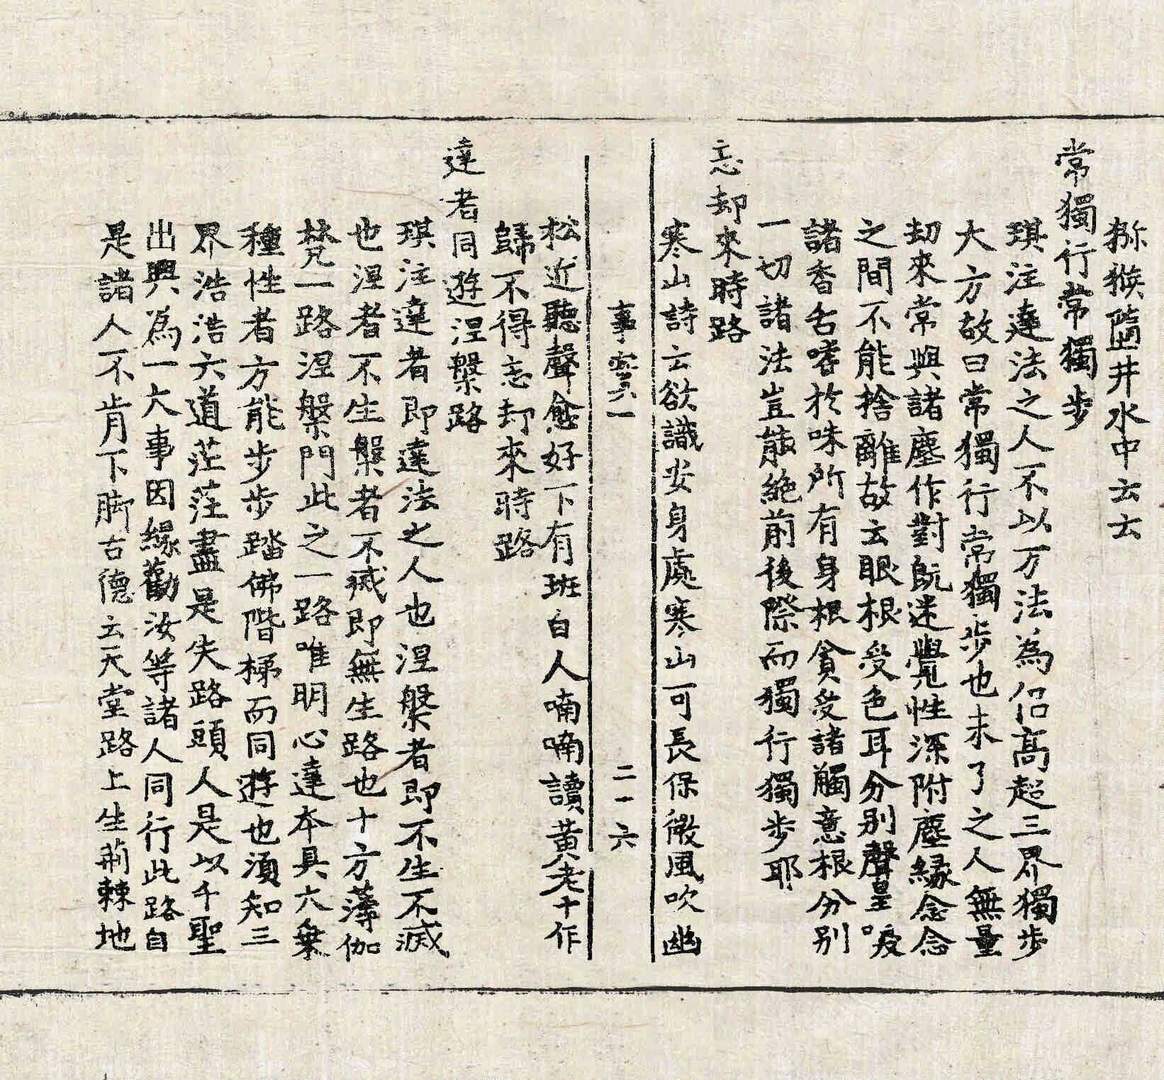 猕猴墮井水中云云
常獨行常獨步
琪注達法之人不以万法為侣高超三界獨步
大方故曰常獨行常獨步也未了之人無量
刧來常與諸塵作對既迷覺性深附塵緣念念
之間不能捨離故云眼根受色耳分别聲鼻嗅
諸香舌嗜於味所有身根貪受諸觸意根分别
一切諸法豈能絶前後際而獨行獨步耶
忘却來時路
寒山詩云欲識安身處寒山可長保微風吹幽
事實六一
二一六
松近聽聲愈好下有班白人喃喃讀黄老十作
歸不得忘却來時路
達者同遊涅槃路
琪注達者即達法之人也涅槃者即不生不滅
也涅者不生槃者不滅即無生路也十方薄伽
梵一路涅槃門此之一路唯明心達本具大乗
種性者方能步步踏佛階梯而同遊也須知三
界浩浩六道茫茫盡是失路頭人是以千聖
出興為一大事因緣勸汝等諸人同行此路自
是諸人不肯下脚古德云天堂路上生荊棘地